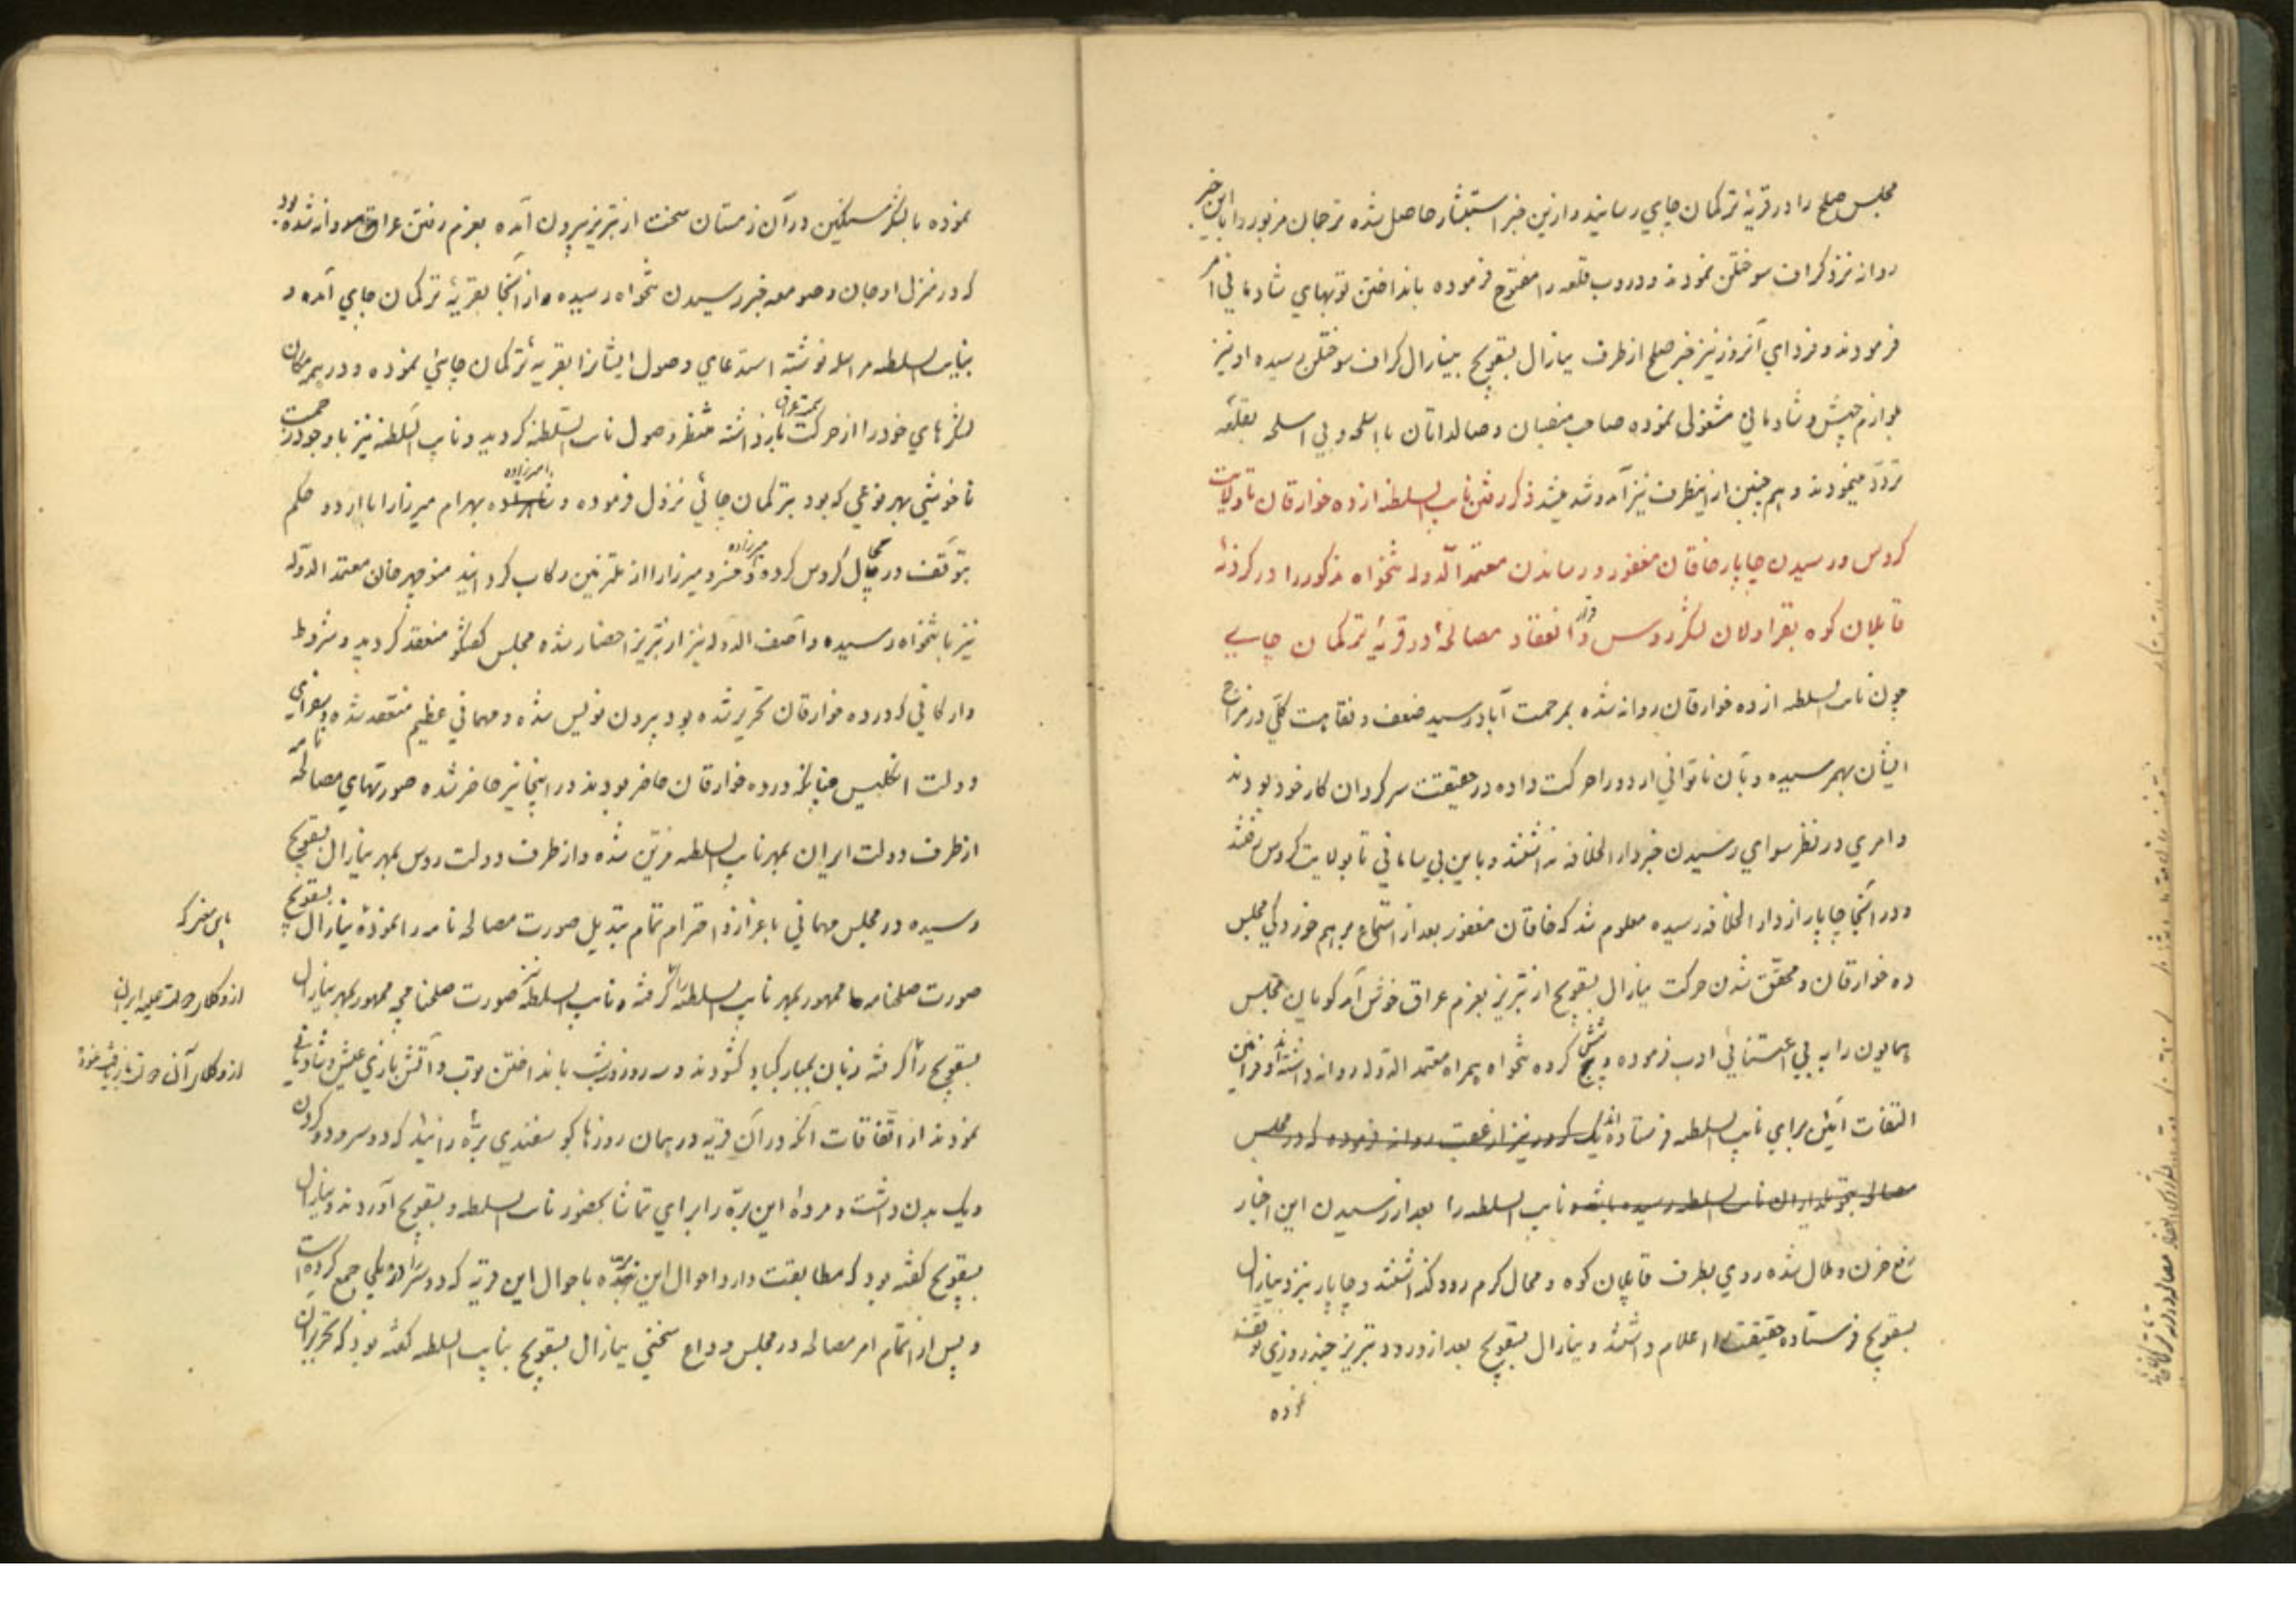 مجلس صلح را در قریهٔ ترکمان چای رسانیدند ازین خبر استبشار حاصل شده ترجمان مزبور را با این خبر
روانه نزد کراف سوختلن نمودند و دروب قلعه را مفتوح فرموده بانداختن توپهای شادمانی امر
فرمودند و فردای آنروز نیز خبر صلح از طرف ینارال بسقویچ بینارال کراف سوختلن رسیده او نیز
بلوازم جشن و شادمانی مشغولی نموده صاحب منصبان و صالداتان با اسلحه و بی اسلحه بقلعه
تردد مینمودند و همچنین از اینطرف نیز آمد و شد میشد ذکر رفتن نایب السلطنه از ده خوارقان تا ولایت
کروس و رسیدن چاپار خاقان مغفور و رساندن معتمد الدوله تنخواه مذکور را در کردنهٔ
قاپلان کوه بقراولان لشکر روس و انعقاد مصالحه در قریهٔ ترکمان چای
چون نایب السلطنه از ده خوارقان روانه شده بمرحمت آباد رسید ضعف و نقاهت کلی در مزاج
ایشان بهمرسیده و بآن ناتوانی اردو را حرکت داده در حقیقت سرکردان کار خود بودند
و امری در نظر سوای رسیدن خبر دار الخلافه نداشتند و باین بی سامانی تا بولایت کروس رفتند
و در آنجا چاپار از دار الخلافه رسیده معلوم شد که خاقان مغفور بعد از استماع برهم خوردکی مجلس
ده خوارقان و محقق شدن حرکت ینارال بسقویچ از تبریز بعزم عراق خوش آمد کویان مجلس
همایون را به بی اعتنائی ادب فرموده و شش کرده تنخواه همراه معتمد الدوله روانه داشته‌اند و فرامین
التفات آئین برای نایب السلطنه فرستاده‌اند یک کرور نیز از عقب روانه فرموده که در مجلس
مصالحه بتحویلداران نایب السلطنه رسیده باشد نایب السلطنه را بعد از رسیدن این اخبار
رفع حزن و ملال شده روی بطرف قاپلان کوه و محال کرم رود گذاشتند و چاپار نیز نزد ینارال
بسقویچ فرستاده حقیقت را اعلام داشتند و ینارال بسقویچ بعد از ورود تبریز چند روزی توقف
نموده
نموده با لشکر سنکین در آن زمستان سخت از تبریز بیرون آمده بعزم رفتن عراق روانه شده بود
که در منزل اوجان و صومعه خبر رسیدن تنخواه رسیده و از آنجا بقریهٔ ترکمان چای آمده و
بنایب السلطنه مراسله نوشته استدعای وصول ایشانرا بقریهٔ ترکمان چای نموده و در هر مکان
لشکرهای خود را از حرکت بسمت عراق بازداشته منتظر وصول نایب السلطنه کردید و نایب السلطنه نیز با وجود زحمت
ناخوشی بهر نوعی که بود بترکمان چائی نزول فرموده و امیرزاده بهرام میرزا را با اردو حکم
بتوقف در محال کروس کرده و میرزاده خسرو میرزا را از ملتزمین رکاب کردانید منوچهر خان معتمد الدوله
نیز با تنخواه رسیده و آصف الدوله نیز از تبریز احضار شده مجلس کفتکو منعقد کردید و شروط
و ارکانی که در ده خوارقان تحریر شده بود بیرون نویس شده و مهمانی عظیم منعقد شده و سفرای
دولت انکلیس چنانکه در ده خوارقان حاضر بودند در اینجا نیز حاضر شده صورتهای مصالحه نامه
از طرف دولت ایران بمهر نایب السلطنه مزین شده و از طرف دولت روس بمهر ینارال بسقویچ
رسیده در مجلس مهمانی باعزاز و احترام تمام تبدیل صورت مصالحه نامه را نموده ینارال بسقویچ
صورت صلحنامه ممهور بمهر نایب السلطنه را کرفته و نایب السلطنه نیز صورت صلحنامچه ممهور بمهر ینارال
بسقویچ را کرفته زبان بمبارکباد کشودند و سه روز و شب بانداختن توپ و آتش بازی عیش و شادمانی
نمودند از اتفاقات آنکه در آن قریه در همان روزها کوسفندی برهٔ زائید که دو سر و دو کردن
و یک بدن داشت و مردهٔ این بره را برای تماشا بحضور نایب السلطنه و بسقویچ آوردند و ینارال
بسقویچ کفته بود که مطابقت دارد احوال این بره باحوال این قریه که دو سر را در یکی جمع کرده است
و پس از اتمام امر مصالحه در مجلس وداع سخنی ینارال بسقویچ بنایب السلطنه کفته بود که تحریر آن